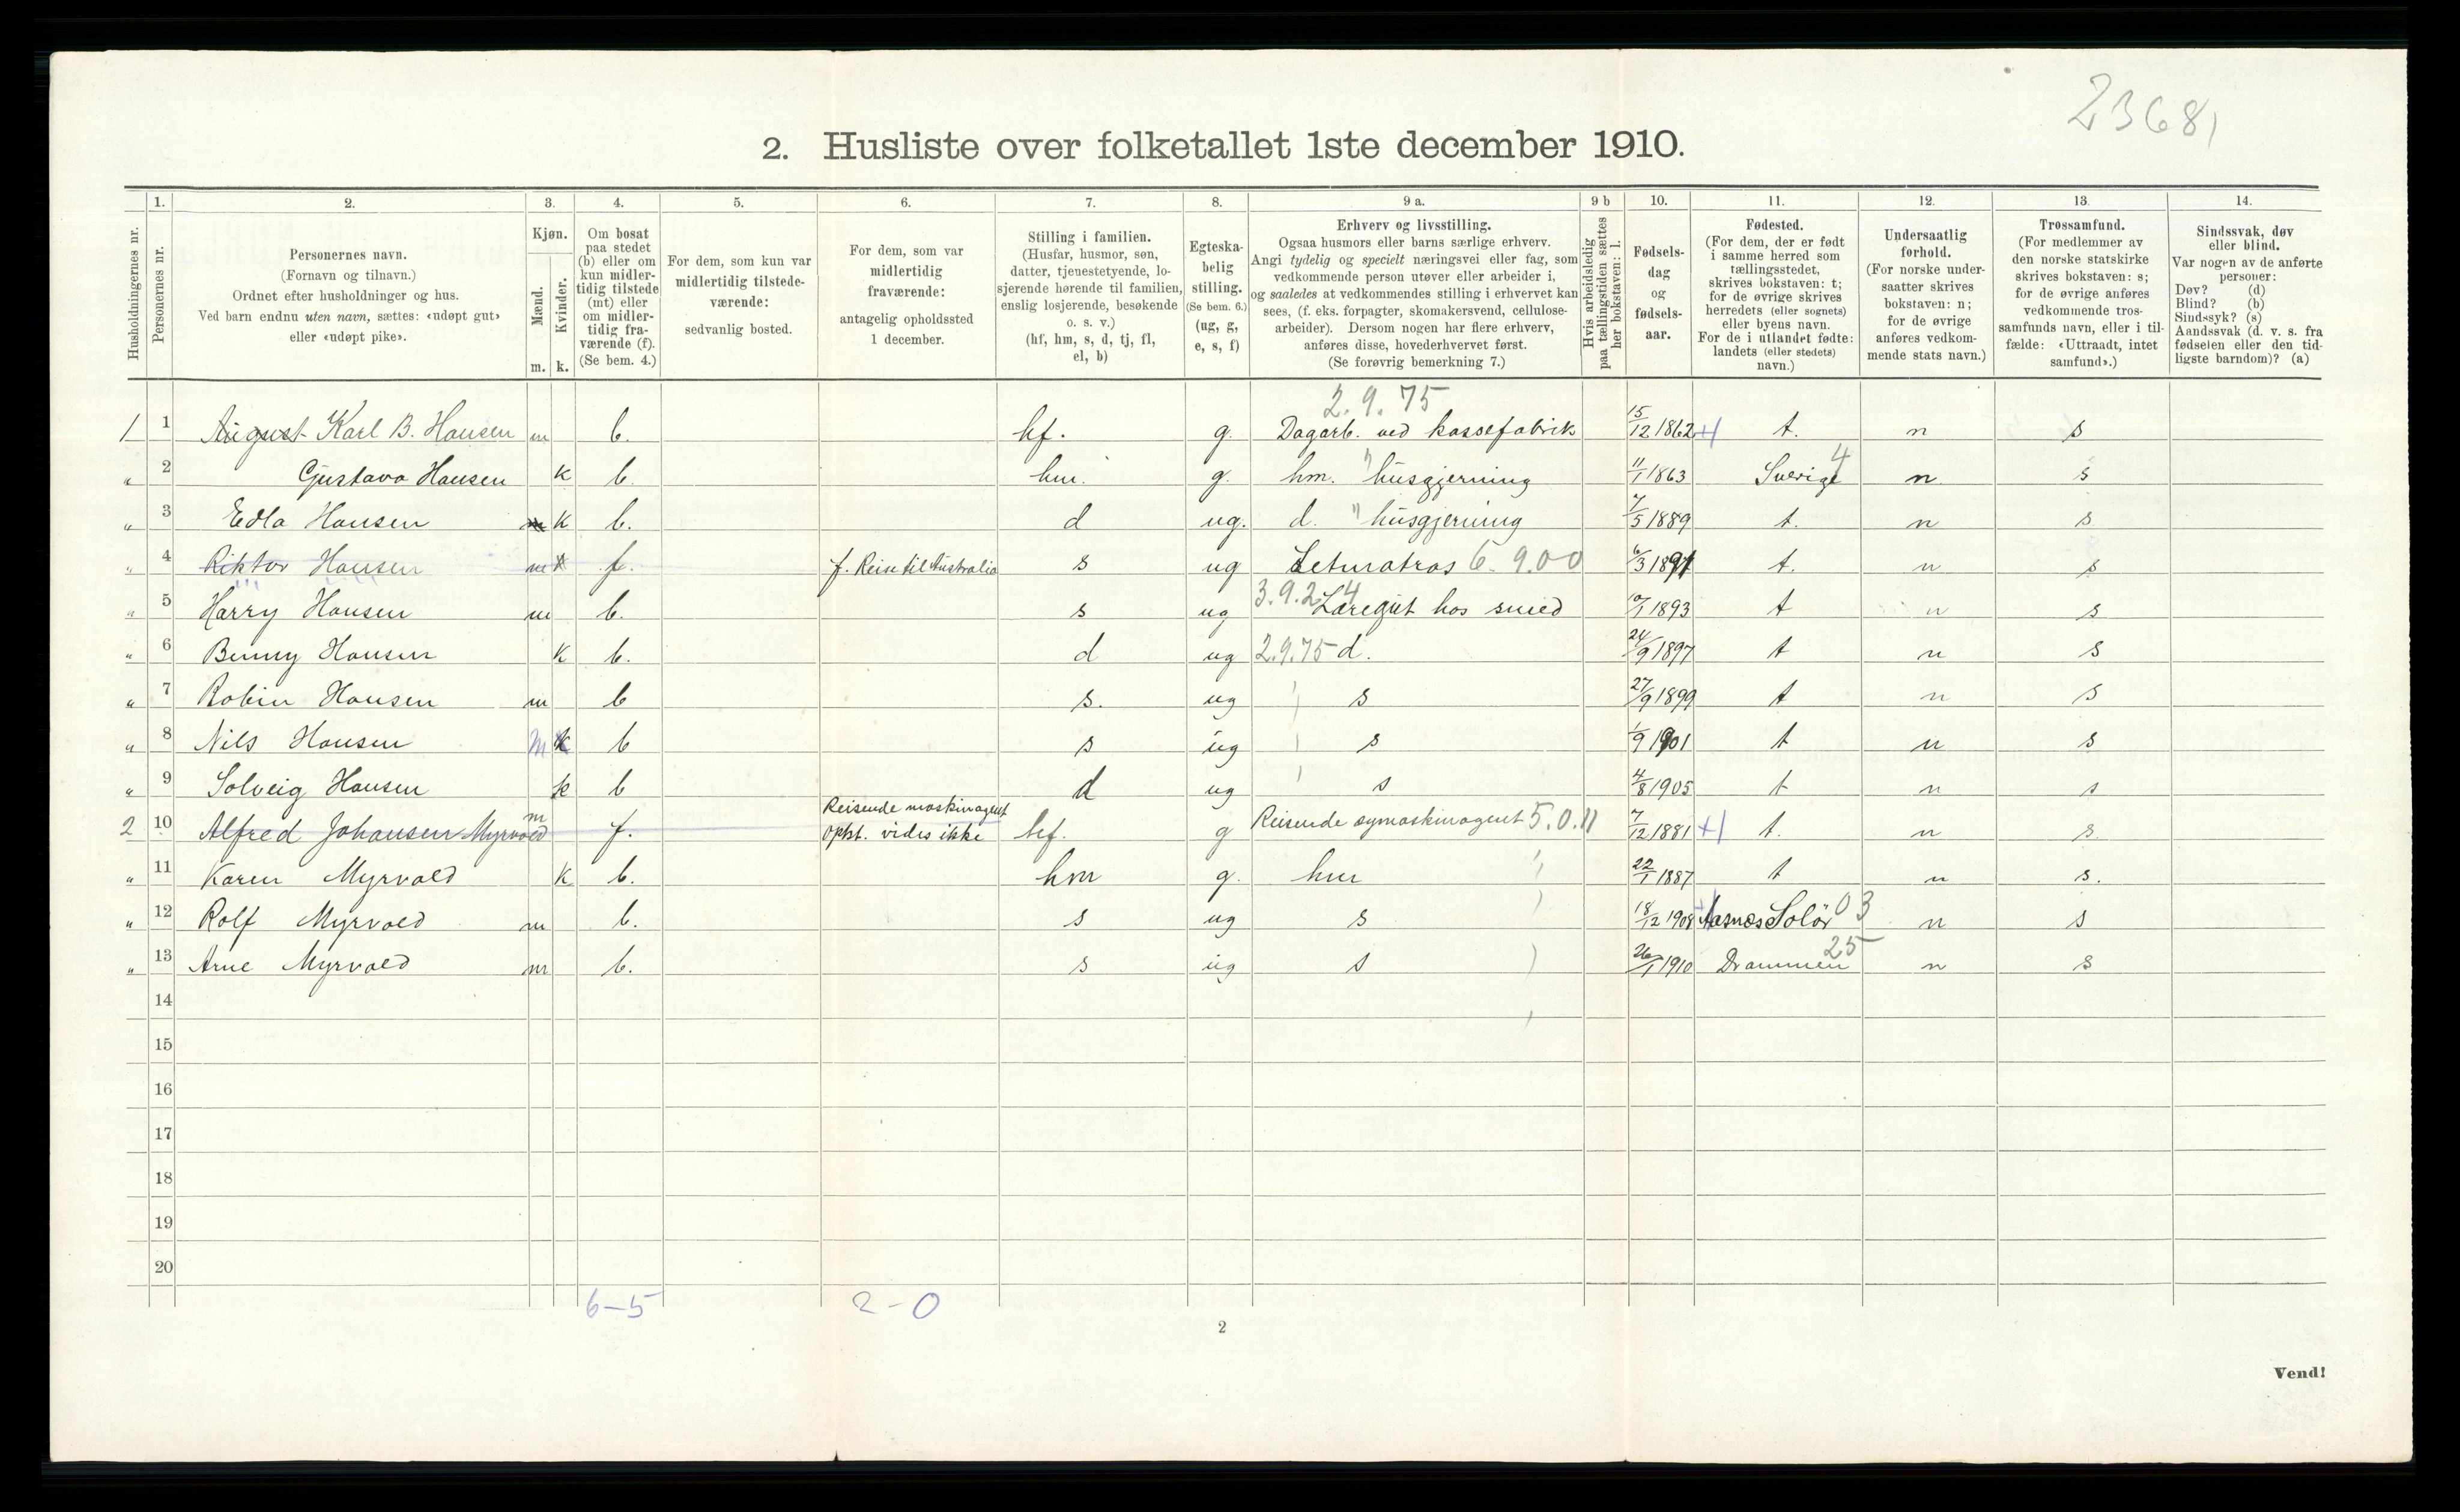 23681
2. Husliste over folketallet 1ste december 1910.
Husholdningernes nr.
1.
Personernes nr.
2.
Personernes navn.
(Fornavn og tilnavn.)
Ordnet efter husholdninger og hus.
Ved barn endnu uten navn, sættes: «udøpt gut»
eller «udøpt pike».
3.
Kjøn.
Mænd.
Kvinder.
m. k.
4.
Om bosat
paa stedet
(b) eller om
kun midler-
tidig tilstede
(mt) eller
om midler-
tidig fra-
værende (f).
(Se bem. 4.)
5.
For dem, som kun var
midlertidig tilstede-
værende:
sedvanlig bosted.
6.
For dem, som var
midlertidig
fraværende:
antagelig opholdssted
1 december.
7.
Stilling i familien.
(Husfar, husmor, søn,
datter, tjenestetyende, lo-
sjerende hørende til familien,
enslig losjerende, besøkende
o. s. v.)
(hf, hm, s, d, tj, fl,
el, b)
8.
Egteska-
belig
stilling.
(Se bem. 6.)
(ug, g,
e, s, f)
9 a.
Erhverv og livsstilling.
Ogsaa husmors eller barns særlige erhverv.
Angi tydelig og specielt næringsvei eller fag, som
vedkommende person utøver eller arbeider i,
og saaledes at vedkommendes stilling i erhvervet kan
sees, (f. eks. forpagter, skomakersvend, cellulose-
arbeider). Dersom nogen har flere erhverv,
anføres disse, hovederhvervet først.
(Se forøvrig bemerkning 7.)
9 b
Hvis arbeidsledig
paa tællingstiden sættes
her bokstaven: l.
10.
Fødsels-
dag
og
fødsels-
aar.
11.
Fødested.
(For dem, der er født
i samme herred som
tællingsstedet,
skrives bokstaven: t;
for de øvrige skrives
herredets (eller sognets)
eller byens navn.
For de i utlandet fødte:
landets (eller stedets)
navn.)
12.
Undersaatlig
forhold.
(For norske under-
saatter skrives
bokstaven: n;
for de øvrige
anføres vedkom-
mende stats navn.)
13.
Trossamfund.
(For medlemmer av
den norske statskirke
skrives bokstaven: s;
for de øvrige anføres
vedkommende tros-
samfunds navn, eller i til-
fælde: «Uttraadt, intet
samfund».)
14.
Sindssvak, døv
eller blind.
Var nogen av de anførte
personer:
Døv? (d)
Blind? (b)
Sindssyk? (s)
Aandssvak (d. v. s. fra
fødselen eller den tid-
ligste barndom)? (a)
2.9.75
1 1 August Karl B. Hansen m b. hf. g. Dagarb. ved kassefabrik 15/12 1862 t. n s
" 2 Gustava Hansen k b. hm. g. hm. husgjerning 11/1 1863 Sverige 4 n s
" 3 Edla Hansen k b. d ug. d. husgjerning 7/5 1889 t. n s
" 4 Hansen m f. f. Reise til Australia s ug 6.9.00 6/3 1891 t. n s
" 5 Harry Hansen m b. s ug 3.9.24 Læregut hos smed 1893 t n s
" 6 Benny Hansen k b. d ug 2.9.75 d. 24/9 1897 t n s
" 7 Robin Hansen m b s. ug s 27/9 1899 t n s
" 8 Nils Hansen m b s ug s 1/9 1901 t n s
" 9 Solveig Hansen k b d ug s 4/8 1905 t n s
2 10 Alfred Johansen Myrvold m f. Reisende maskinagent
opht. vides ikke hf. g Reisende symaskinagent 5.0.11 7/12 1881 t. n s
" 11 Karen Myrvold k b. hm g. hm 22/1 1887 t n s.
" 12 Rolf Myrvold m b. s ug s 18/12 1908 Aasnes Solör 03 n s
" 13 Arne Myrvold m b. s ug s 26/1 1910 Drammen 25 n s
14
15
16
17
18
19
20
6-5 2-0
2
Vend!